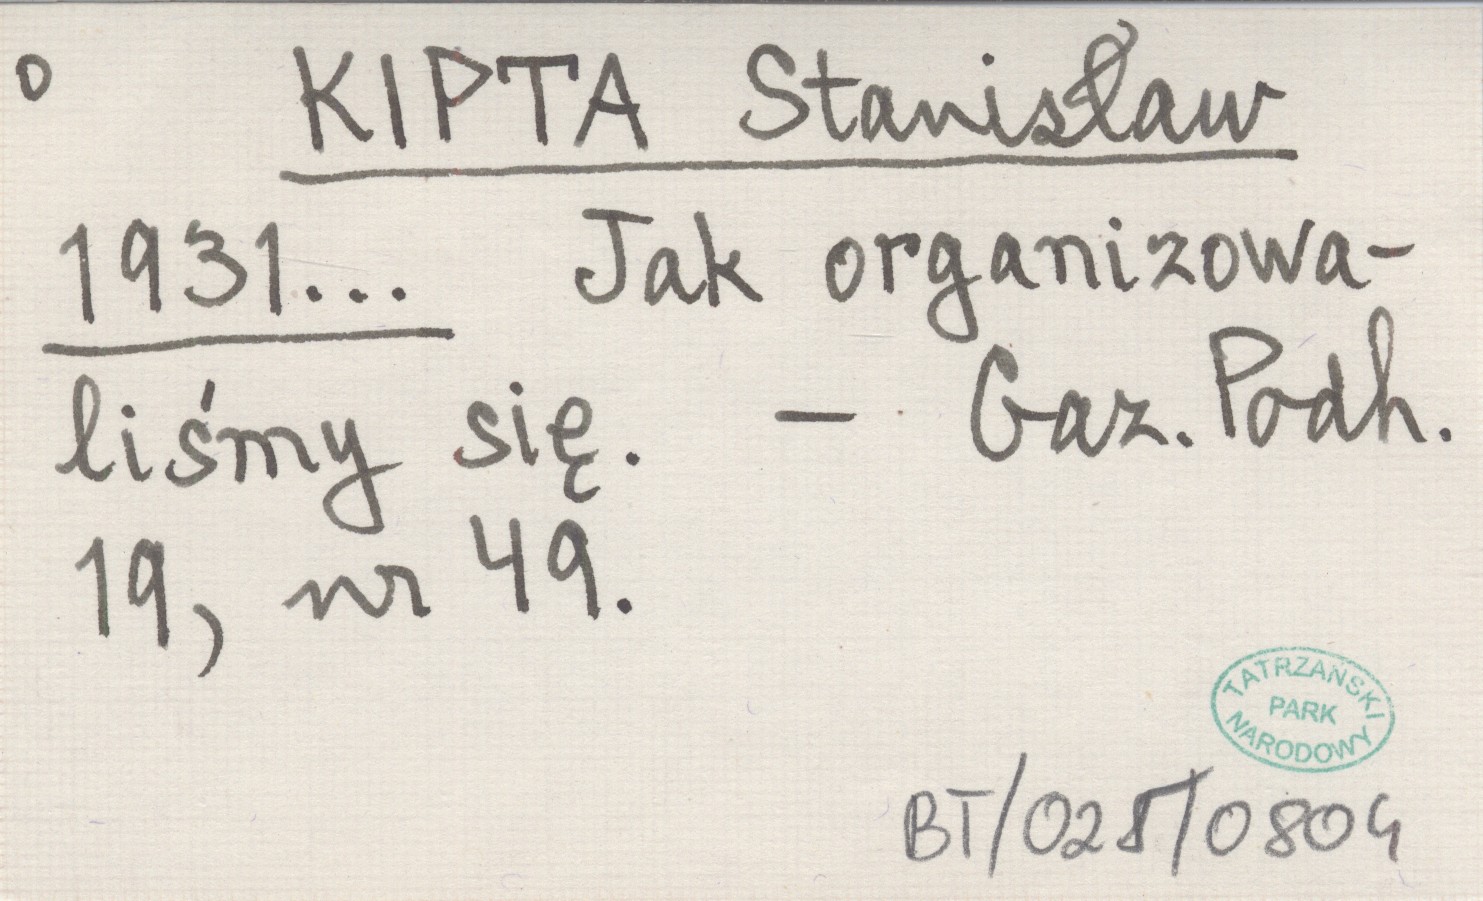 o KIPTA Stanisław
1931... Jak organizowa-
liśmy się. - Gaz. Podh.
19, nr 49.
TATRZAŃSKI
PARK
NARODOWY
BT/028/0804